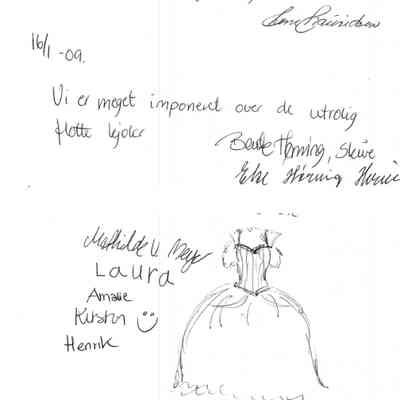 16/1 -09.
Vi er meget imponeret over de utrolig
flotte kjoler
Bente Hørning, Skive
Else Hørning
Mathilde U. Meyer
Laura
Amalie
Kirstin
Henrik